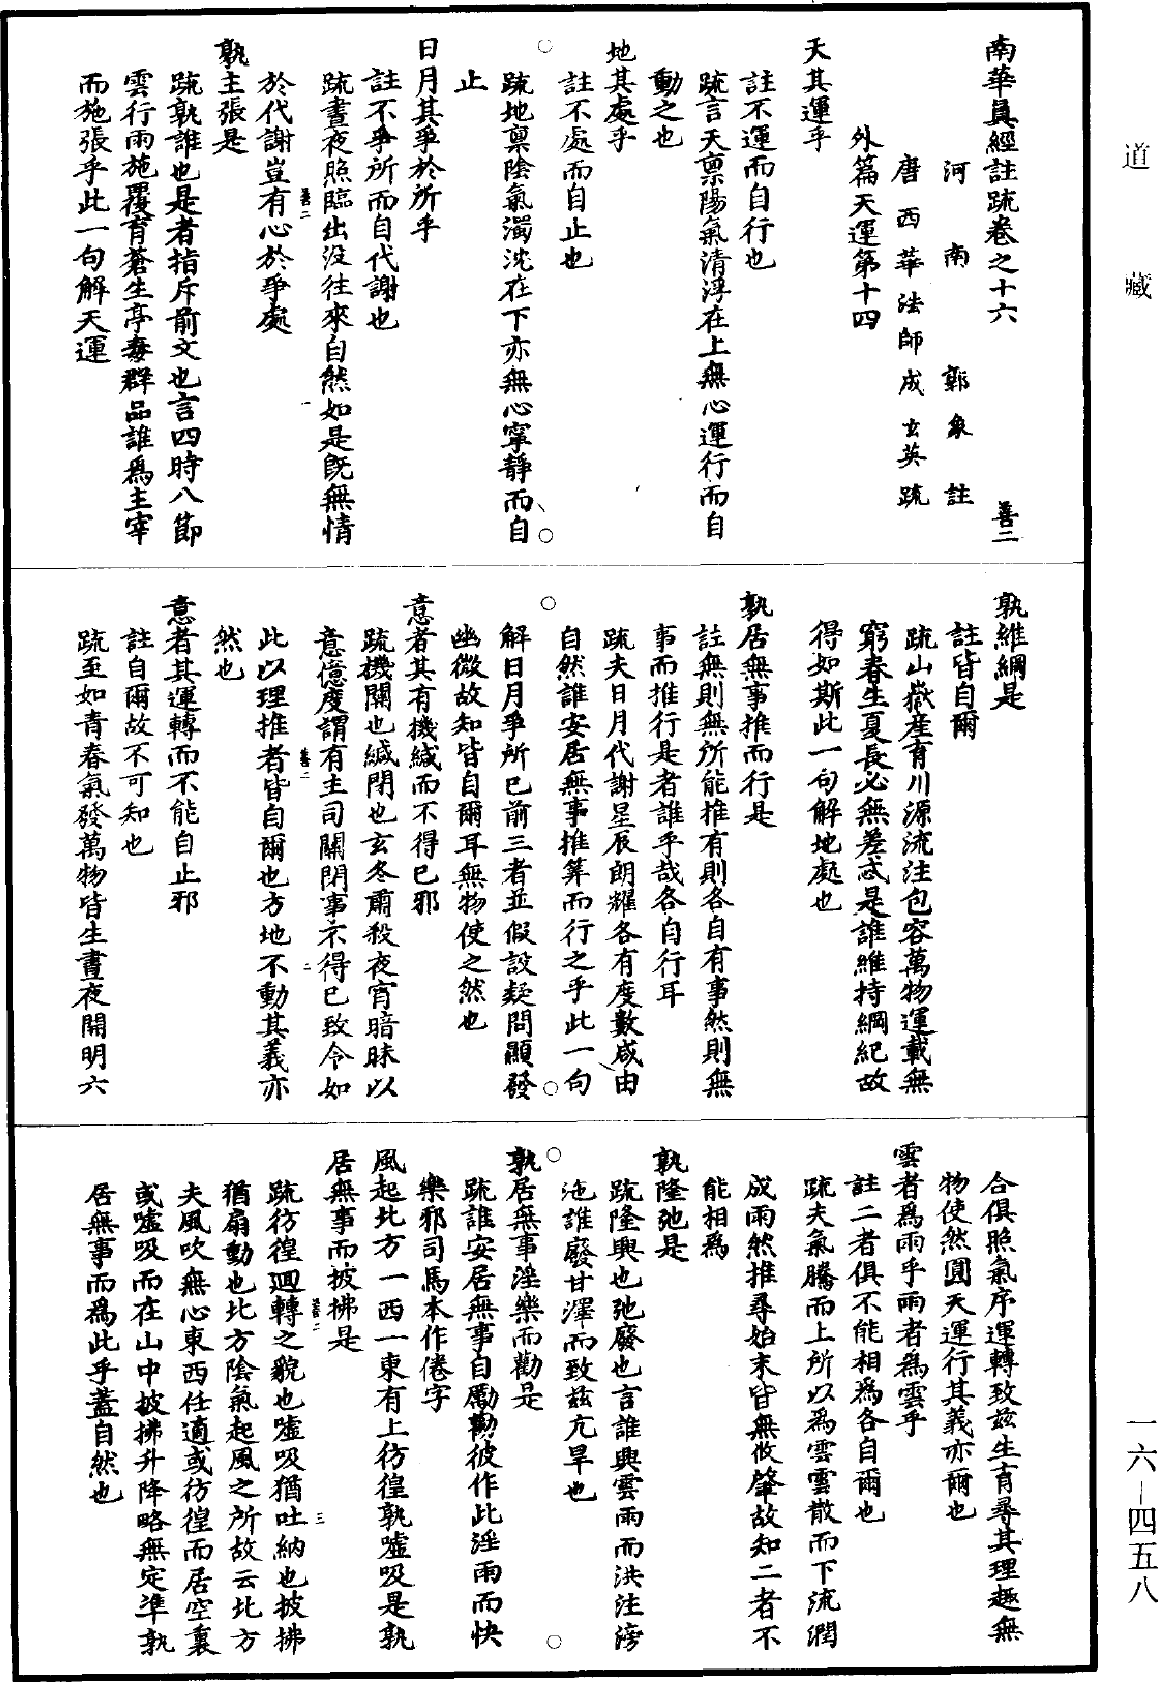 道藏
南華真經註疏卷之十六 善二
河南郭象註
唐西華法師成玄英疏
外篇天運第十四
天其運乎
註不運而自行也
疏言天禀陽氣清浮在上無心運行而自
動之也
地其處乎
註不處而自止也
疏地禀陰氣濁沈在下亦無心寧靜而自
止
日月其爭於所乎
註不爭所而自代謝也
疏晝夜照臨出没往來自然如是旣無情
於代謝豈有心於爭處
善二 一
孰主張是
疏孰誰也是者指斥前文也言四時八節
雲行雨施覆育蒼生亭毒群品誰爲主宰
而施張乎此一句解天運
孰維綱是
註皆自爾
疏山嶽產育川源流注包容萬物運載無
窮春生夏長必無差忒是誰維持綱紀故
得如斯此一句解地處也
孰居無事推而行是
註無則無所能推有則各自有事然則無
事而推行是者誰乎哉各自行耳
疏夫日月代謝星辰朗耀各有度數咸由
自然誰安居無事推筭而行之乎此一句
解日月爭所已前三者並假設疑問顯發
幽微故知皆自爾耳無物使之然也
意者其有機緘而不得已邪
疏機關也緘閉也玄冬肅殺夜宵暗昧以
意億度謂有主司關閉事不得已致令如
善二 二
此以理推者皆自爾也方地不動其義亦
然也
意者其運轉而不能自止邪
註自爾故不可知也
疏至如青春氣發萬物皆生晝夜開明六
合俱照氣序運轉致兹生育尋其理趣無
物使然圓天運行其義亦爾也
雲者爲雨乎雨者爲雲乎
註二者俱不能相爲各自爾也
疏夫氣騰而上所以爲雲雲散而下流潤
成雨然推尋始末皆無攸肇故知二者不
能相爲
孰隆弛是
疏隆興也弛廢也言誰興雲雨而洪注滂
沲誰廢甘澤而致兹亢旱也
孰居無事淫樂而勸是
疏誰安居無事自勵勸彼作此淫雨而快
樂邪司馬本作倦字
風起北方一西一東有上彷徨孰嘘吸是孰
居無事而披拂是
善二 三
疏彷徨迴轉之貌也嘘吸猶吐納也披拂
猶扇動也北方陰氣起風之所故云北方
夫風吹無心東西任適或彷徨而居空裏
或嘘吸而在山中披拂升降略無定準孰
居無事而爲此乎蓋自然也
一六—四五八